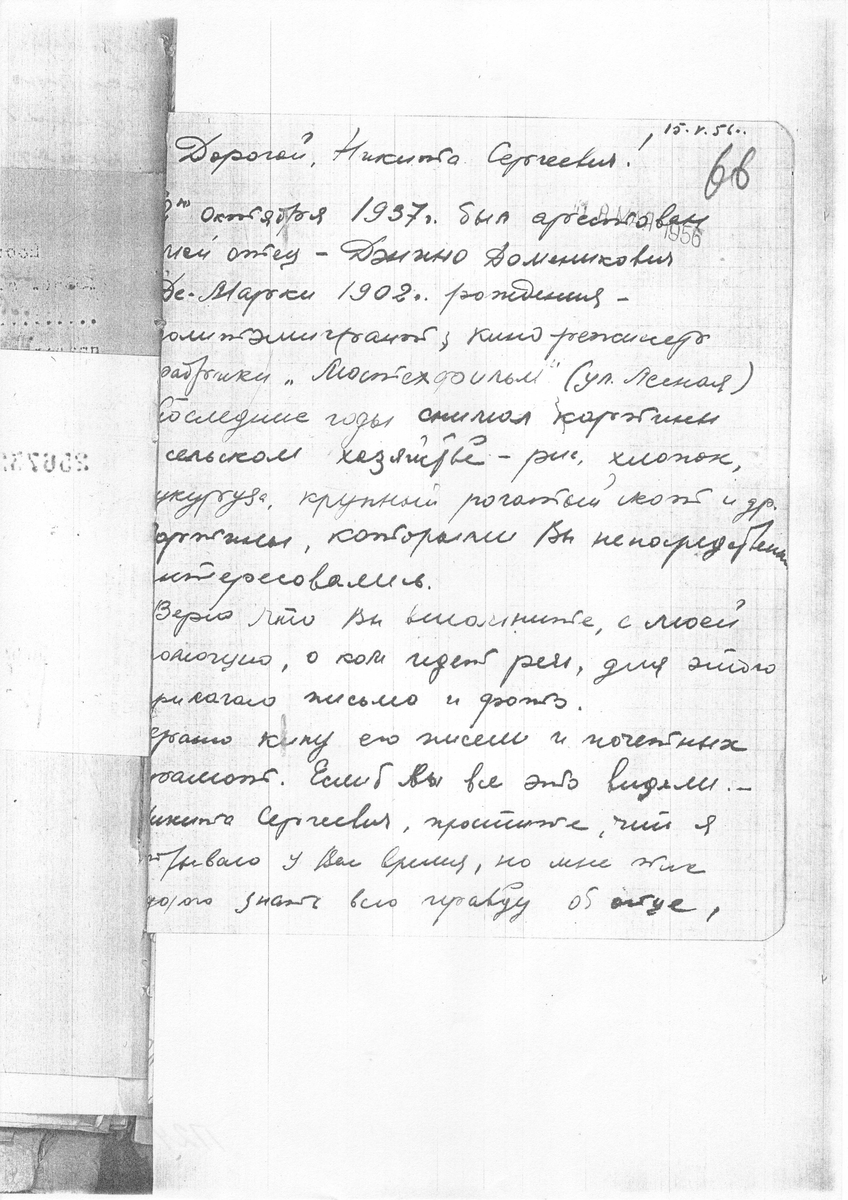 15.V.56г.
Дорогой, Никита Сергеевич!
66
2го октября 1937г. был арестован
1956
мой отец – Джино Доменикович
Де-Марки 1902г. рождения –
олитэмигрант, кинорежиссер
фабрики „Мостехфильм" (ул. Лесная)
последние годы снимал картины
сельском хозяйстве – рис, хлопок,
укуруза, крупный рогатый скот и др.
артины, которыми Вы непосредственно
нтересовались.
Верю что Вы вспомните, с моей
омощью, о ком идет речь, для этого
рилагаю письмо и фото.
храню кипу его писем и почетных
рамот. Если б Вы все это видели. –
икита Сергеевич, простите, что я
трываю у Вас время, но мне так
дорого знать всю правду об отце,